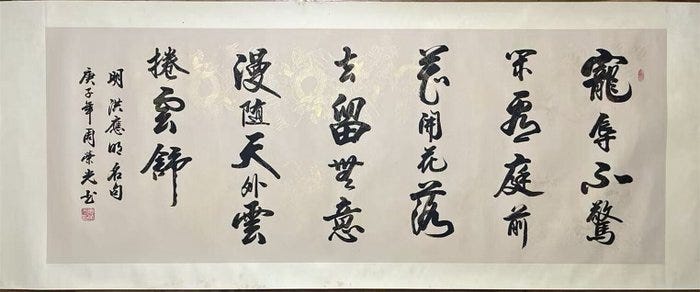 寵辱不驚
閑看庭前
花開花落
去留無意
漫随天外雲
捲雲舒
明洪應明名句
庚子年周榮光书